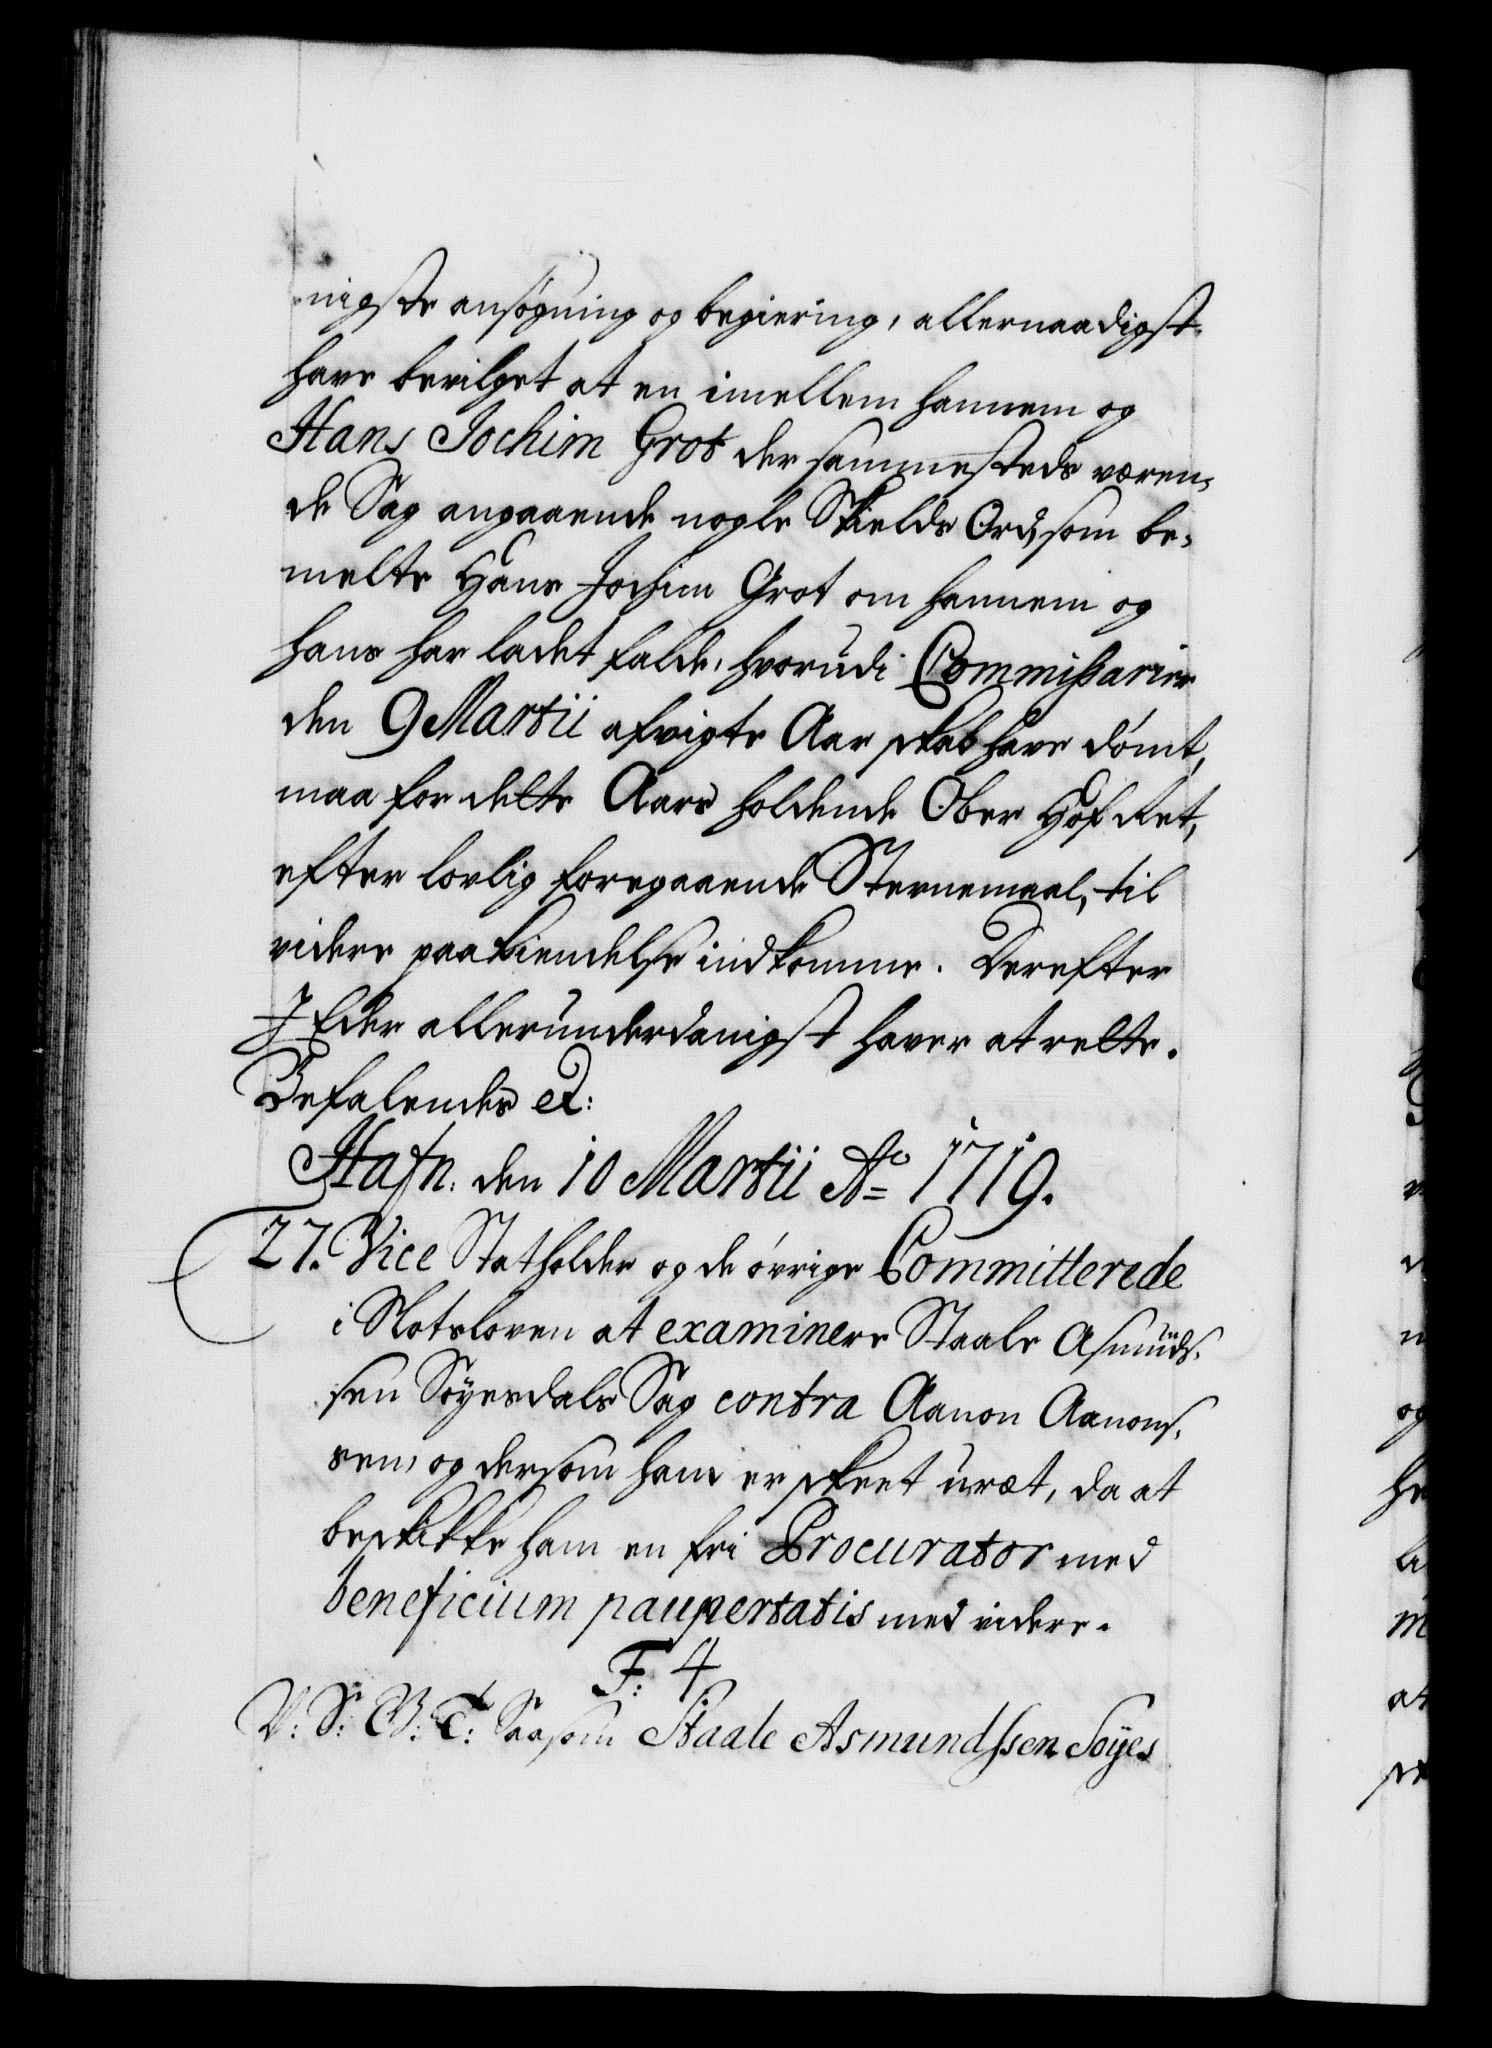 nigste ansøgning og begiering, allernaadigst
have bevilget at en imellem hannem og
Hans Jochim Grot der sammesteds væren-
de Sag angaaende nogle Skields Ord, som be-
melte Hans Jochim Grot om hannem og
hans har ladet falde, hvorudi Commissarier
den 9 Martii afvigte Aar skal have dømt,
maa for dette Aars holdende Ober Hof Ret,
efter lovlig foregaaende Stevnemaal, til
videre paakiendelse indkomme. Derefter
I Eder allerunderdanigst haver at rette.
Befalendes etc:
Hafn. den 10 Martii Ao 1719.
27. Vice Statholder og de øvrige Committerede
i Slotsloven at examinere Staale Asmuds-
sen Søyesdals Sag contra Aanon Aanons-
sen, og dersom ham er skeet uræt, da at
beskikke ham en fri Procurator med
beneficium paupertatis med videre.
F: 4
V: S: G: T: Saasom Staale Asmundssen Søyes